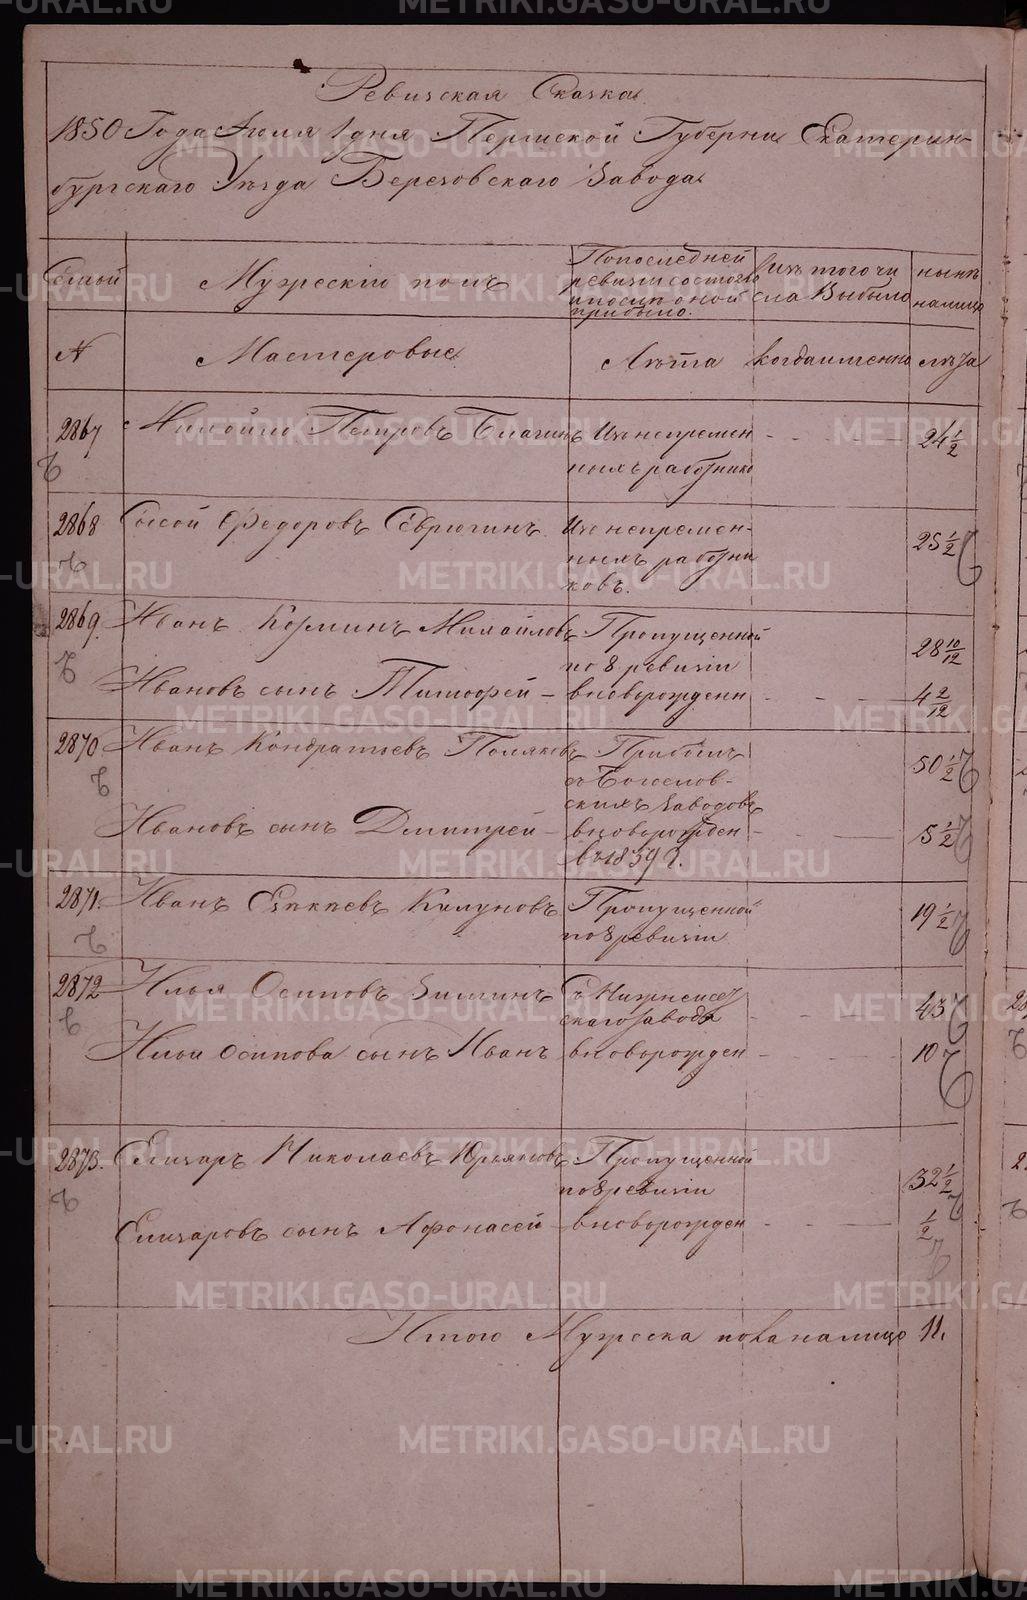 Ревизская Сказка
1850 Года Июля 1 дня Пермской Губернии Екатерин-
бургскаго Уезда Березовскаго Завода
Семьи
Мужескій полъ
По последней
ревизіи состояло
и после оной
прибыло.
Изъ того чи
сла Выбыло
ныне
налицо
№
Мастеровые
Лѣта
когда именно
лѣта
2867
Петровъ
Изъ непремен
ныхъ работнико
24 1/2
2868
Сысой Федоровъ Севрюгинъ
Изъ непремен-
ныхъ работни
ковъ.
25 1/2
2869.
Иванъ Козминъ Михайловъ
Пропущенной
по 8 ревизіи
28 10/12
Ивановъ сынъ Тимофей -
вновьрожденн
4 2/12
2870
Иванъ Кондратьевъ Поляковъ
Прибылъ
съ Богослов-
скихъ Заводовъ
50 1/2
Ивановъ сынъ Дмитрей -
вновьрожден
въ 1839 г.
5 1/2
2871.
Иванъ
Пропущенной
по 8 ревизіи
19 1/2
2872
Илья Осиповъ Зиминъ
Съ Нижнеисет
скаго завода
43
Ильи Осипова сынъ Иванъ
вновьрожден
10
2873.
Елизаръ Николаевъ Юрьяновъ
Пропущенной
по 8 ревизіи
32 1/2
Елизаровъ сынъ Афонасей
вновьрожден
1/2
Итого Мужеска пола налицо 11.
METRIKI.GASO-URAL.RU